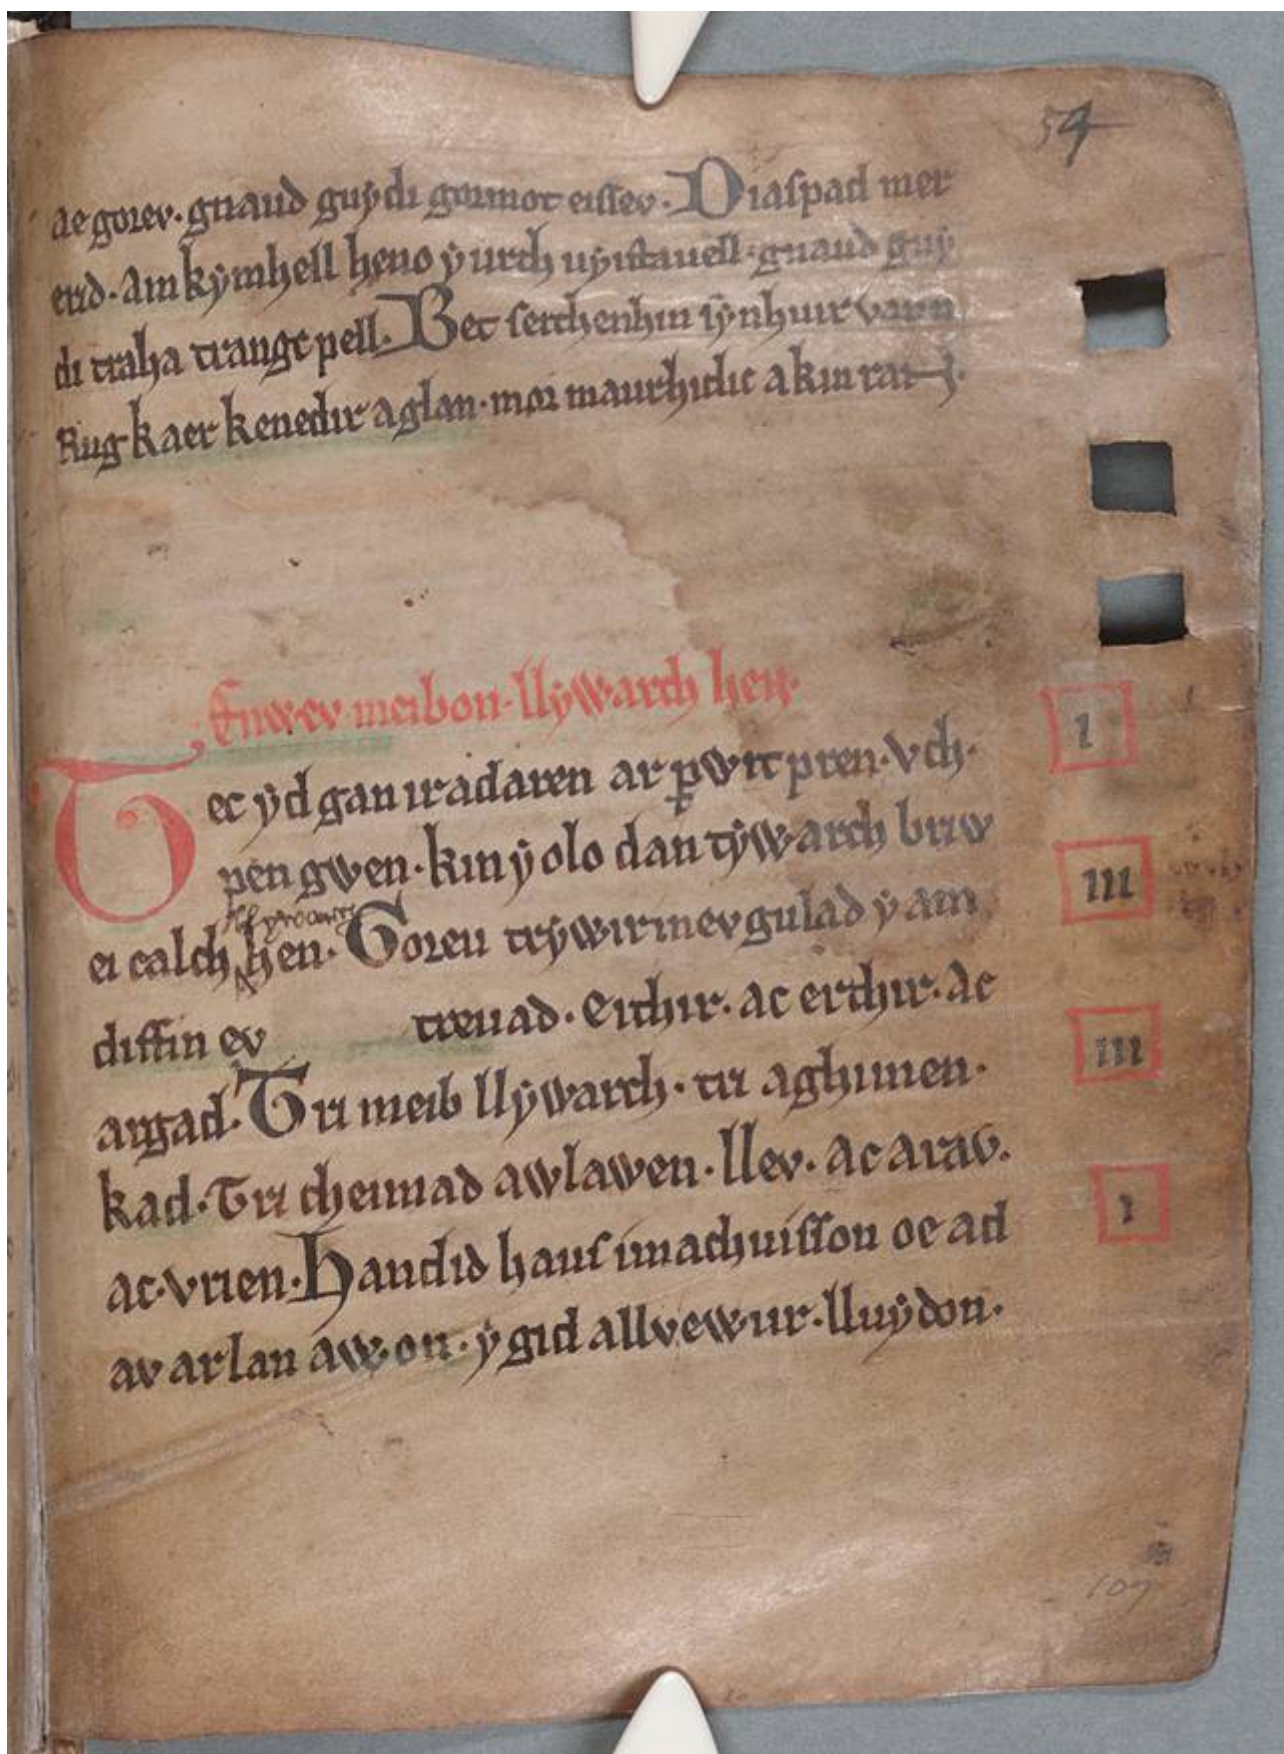 54
ae gorev. gnaud guẏdi gormot eissev. Diaspad mer
erid. am kẏmhell heno ẏ urth uẏistauell. gnaud guẏ
di traha trangc pell. Bet seithenhin sẏnhuir vann
Rug kaer kenedir a glan. mor maurhidic a kinran.
Enwev meibon llẏwarch hen.
I
Tec ẏd gan ir adaren ar perwit pren. vch.
pen gwen. kin ẏ olo dan tẏwarch briw
III
llywarch
ei calch hen. Goreu trẏwir in ev gulad ẏ am
diffin ev treuad. Eithir. ac erthir. ac
III
argad. Tri meib llẏwarch. tri aghimen.
kad. Tri cheimad awlawen. llev. ac arav.
I
ac vrien. Handid haus imachuisson oe ad
av ar lan awon. ẏ gid a llvewur. lluẏdon.
107